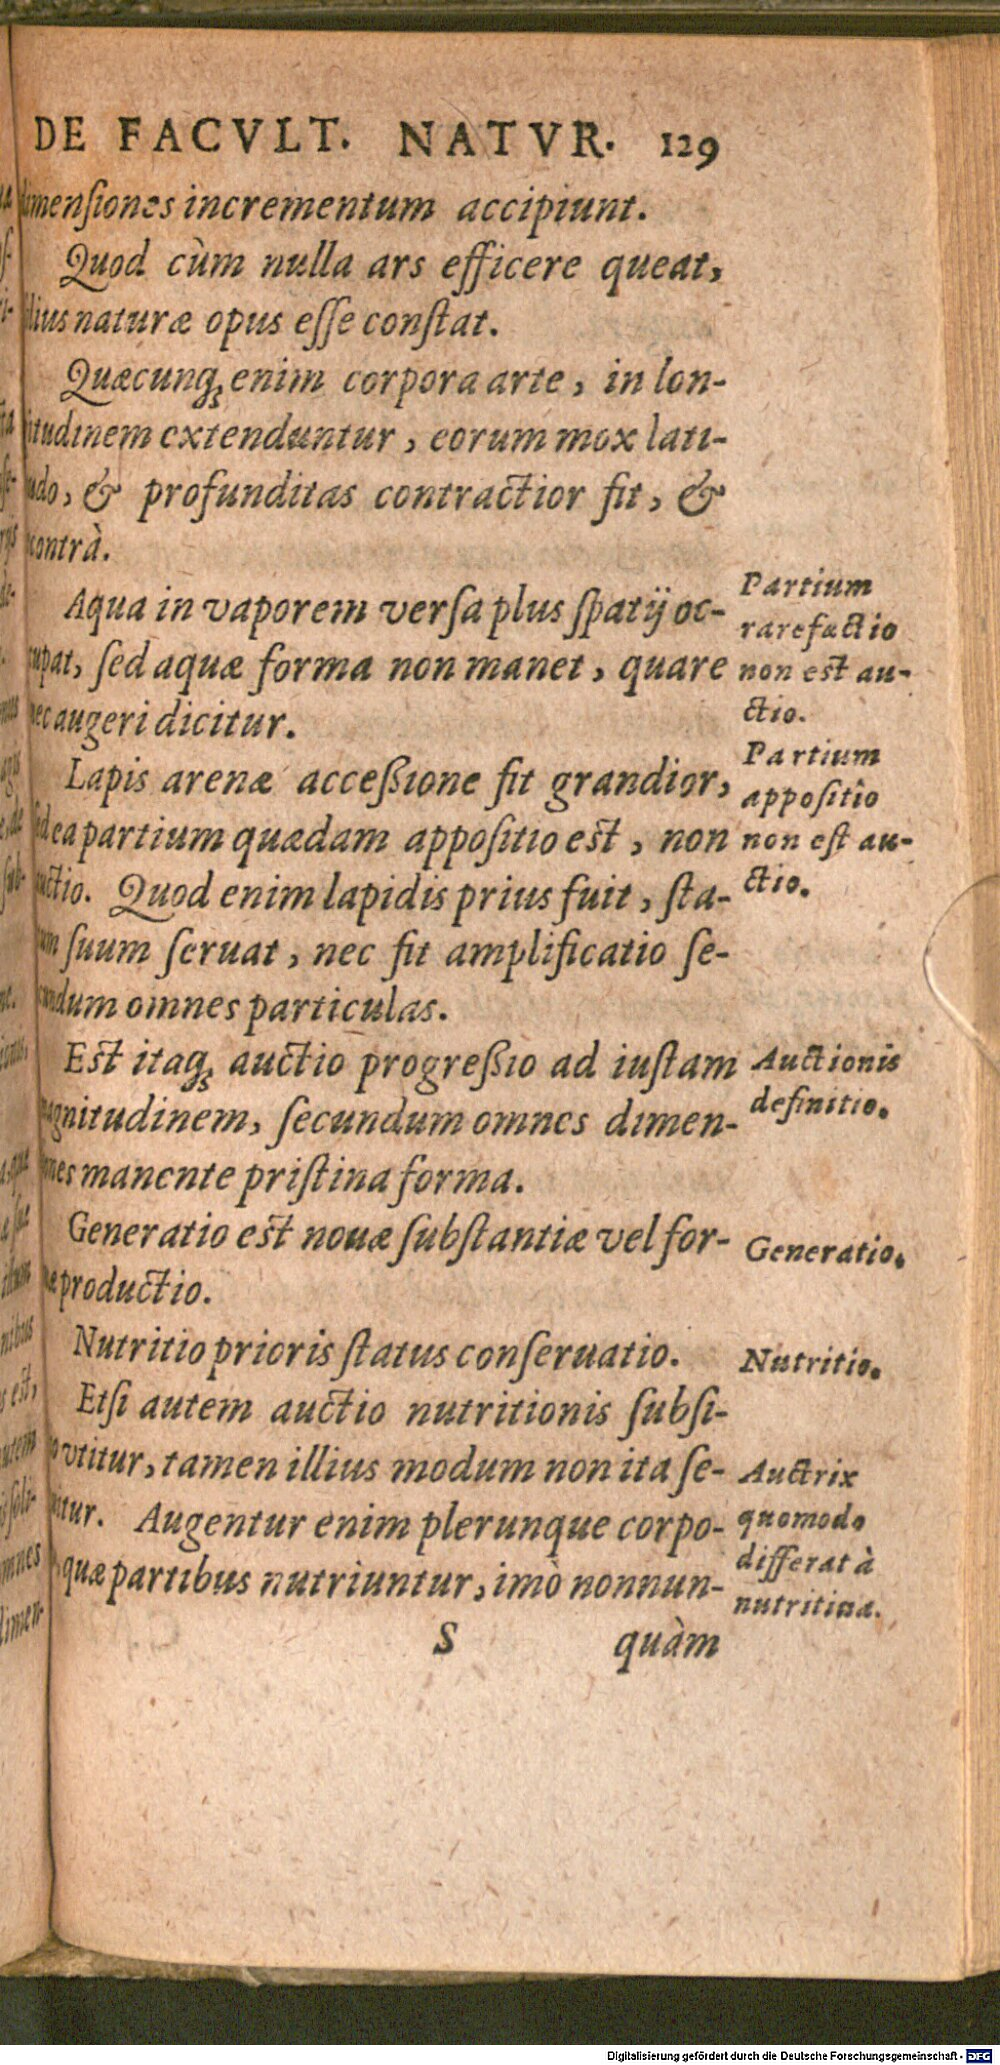 DE FACVLT. NATVR. 129
dimenſiones incrementum accipiunt.
Quod cùm nulla ars efficere queat,
naturæ opus eſſe conſtat.
Quæcunq; enim corpora arte, in lon-
gitudinem extenduntur, eorum mox lati-
tudo, & profunditas contractior fit, &
contrà.
Aqua in vaporem verſa plus ſpatij oc-
cupat, ſed aquæ forma non manet, quare
nec augeri dicitur.
Partium
rarefactio
non est au-
ctio.
Lapis arenæ acceßione fit grandior,
ſed ea partium quædam appoſitio est, non
auctio. Quod enim lapidis prius fuit, ſta-
tum ſuum ſeruat, nec fit amplificatio ſe-
cundum omnes particulas.
Partium
appoſitio
non eſt au-
ctio.
Est itaq; auctio progreßio ad iuſtam
magnitudinem, ſecundum omnes dimen-
ſiones manente priſtina forma.
Auctionis
definitio.
Generatio est nouæ ſubſtantiæ vel for-
mæ productio.
Generatio.
Nutritio prioris ſtatus conſeruatio.
Nutritio.
Etſi autem auctio nutritionis ſubſi-
dio vtitur, tamen illius modum non ita ſe-
quitur. Augentur enim plerunque corpo-
quæ partibus nutriuntur, imò nonnun-
Auctrix
quomodo
differat à
nutritiua.
S quàm
Digitalisierung gefördert durch die Deutsche Forschungsgemeinschaft - DFG